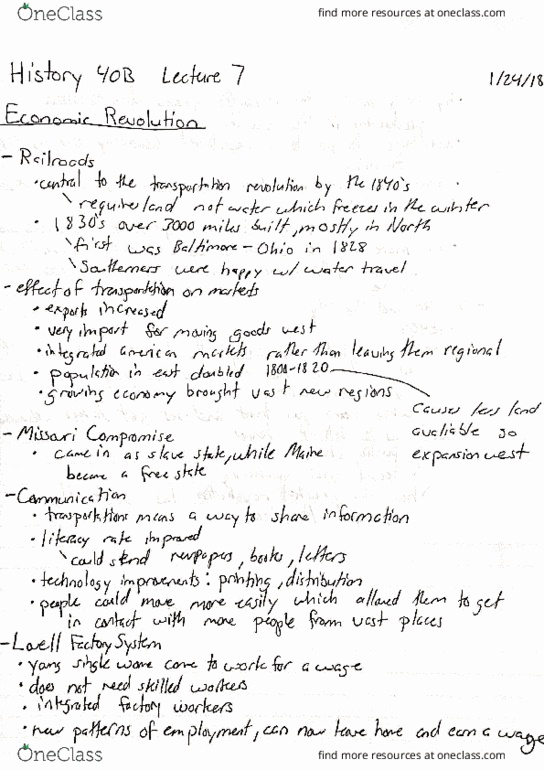 OneClass
find more resources at oneclass.com
History 40B Lecture 7
1/24/18
Economic Revolution
- Railroads
• central to the transportation revolution by the 1840's
\ require land not water which freezes in the winter
• 1830's over 3000 miles built, mostly in North
\ first was Baltimore - Ohio in 1828
\ Southerners were happy w/ water travel
- effect of transportation on markets
• exports increased
• very import for moving goods west
• integrated american markets rather than leaving them regional
• population in east doubled 1800-1820
• growing economy brought vast new regions
causes less land
avaliable so
expansion west
- Missouri Compromise
• came in as slave state, while Maine
became a free state
- Communication
• transportations means a way to share information
• literacy rate improved
\ could send newspapers, books, letters
• technology improvements: printing, distribution
• people could move more easily which allowed them to get
in contact with more people from vast places
- Lowell Factory System
• young single women came to work for a wage
• does not need skilled workers
• integrated factory workers
• new patterns of employment, can now leave home and earn a wage
OneClass
find more resources at oneclass.com